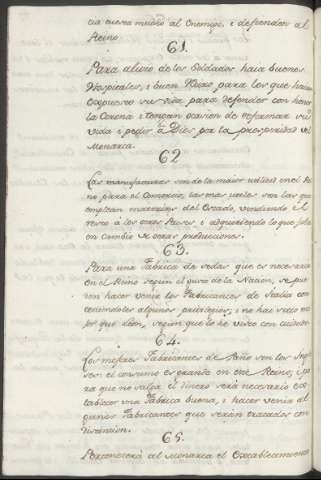 cia cuesa miedo al Enemigo, i defender al
Reino.
61.
Para alivio de los Soldados haia buenos
Hospitales, i buen para los que haian
expuesto su vida para defender con honor
la Corona i tengan ocasion de reformar su
vida i pedir à Dios por la prosperidad del
Monarca.
62
Las manufacturas son de la maior utilidad en el Rei
no para el Comercio, las mas utiles son las que
emplean materiales del Estado, vendiendo el
resto à los otros Paises i adquiriendo lo que falta
en cambio de otras producciones.
63.
Para una Fabrica de sedas que es necesaria
en el Reino segun el gusto de la Nacion, se pue
den hacer venir los Fabricantes de Italia con
cediendoles algunos privilegios, i no hai sitio me
jor que Leon, segun que lo he visto con cuidado.
64.
Los mejores Fabricantes de Paño son los Ingle
ses: el consumo es grande en este Reino, i pa
ra que no salga el dinero será necesario es
tablecer una Fabrica buena, i hacer venir al
gunos Fabricantes que serán tratados con
distincion.
65.
Pertenecerá al Monarca el Establecimiento